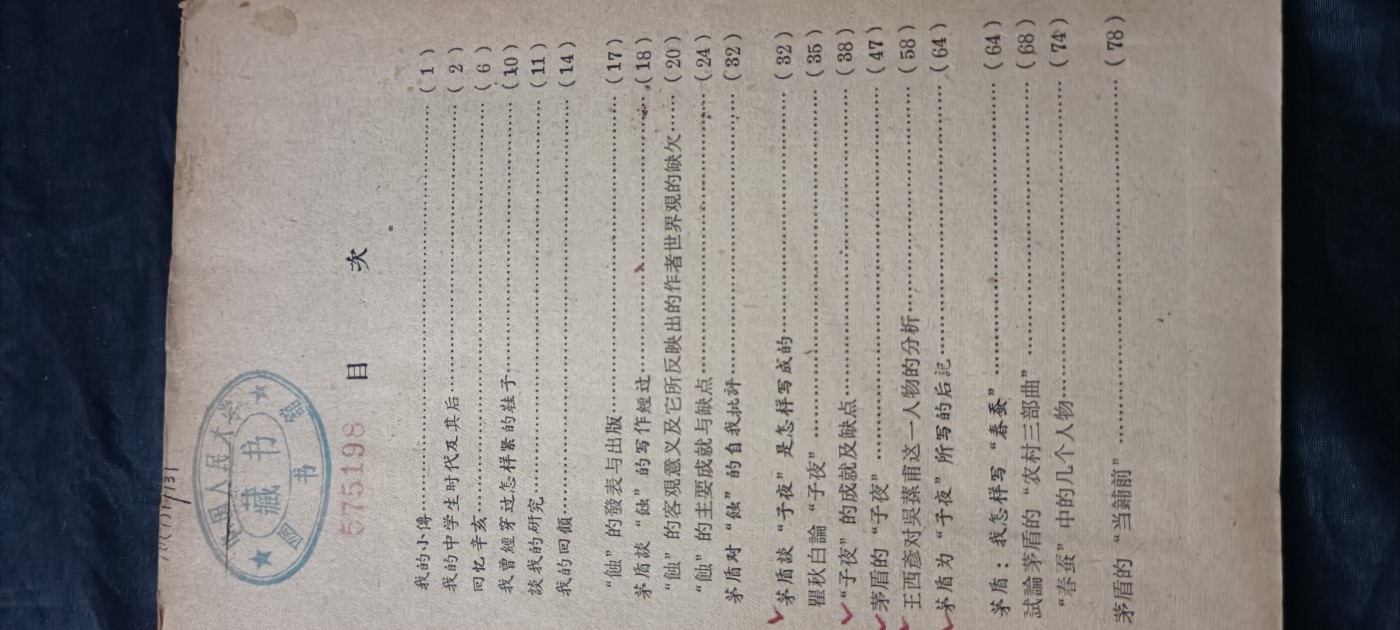 藏书
575198
目 次
我的小傳……(1)
我的中学生时代及其后……(2)
回忆辛亥……(6)
我曾經穿过怎样紧的鞋子……(10)
談我的研究……(11)
我的回顧……(14)
“蝕”的發表与出版……(17)
茅盾談“蝕”的写作經过……(18)
“蝕”的客观意义及它所反映出的作者世界观的缺欠……(20)
“蝕”的主要成就与缺点……(24)
茅盾对“蝕”的自我批評……(32)
茅盾談“子夜”是怎样写成的……(32)
瞿秋白論“子夜”……(35)
“子夜”的成就及缺点……(38)
茅盾的“子夜”……(47)
王西彥对吳蓀甫这一人物的分析……(58)
茅盾为“子夜”所写的后記……(64)
茅盾：我怎样写“春蚕”……(64)
試論茅盾的“农村三部曲”……(68)
“春蚕”中的几个人物……(74)
茅盾的“当鋪前”……(78)